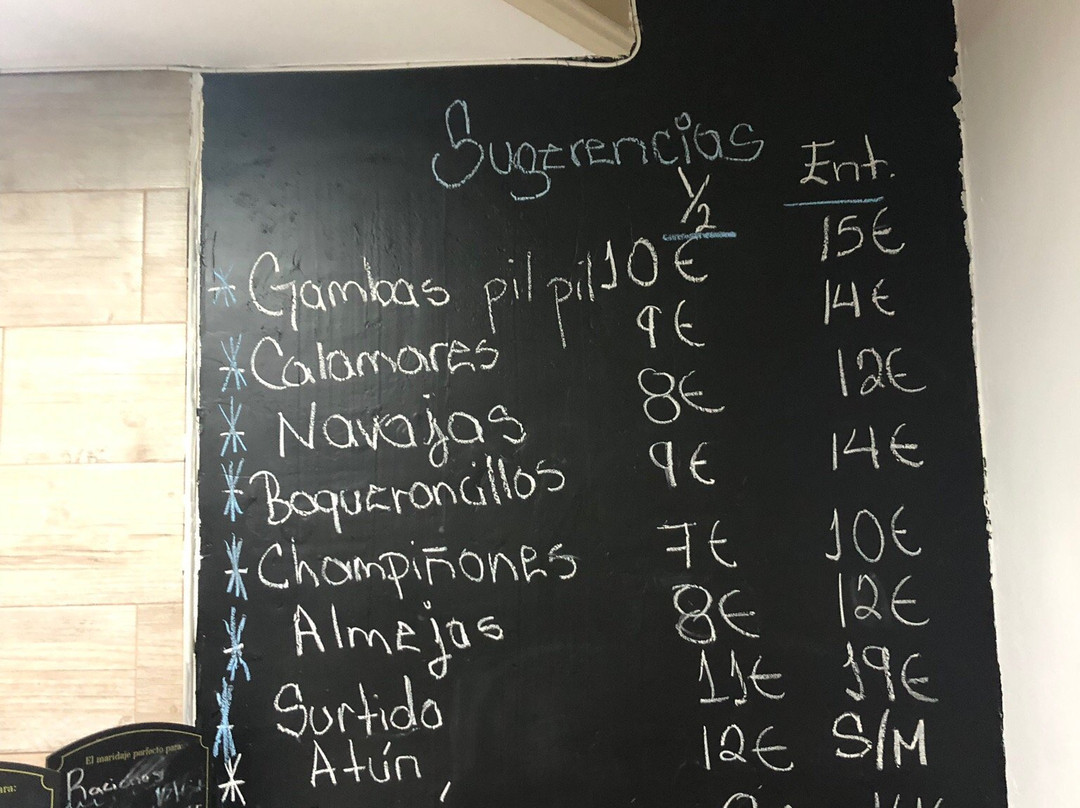 Sugerencias
1/2 Ent.
* Gambas pil pil 10€ 15€
* Calamares 9€ 14€
* Navajas 8€ 12€
* Boqueroncillos 9€ 14€
* Champiñones 7€ 10€
* Almejas 8€ 12€
* Surtido 11€ 19€
* Atún 12€ S/M
El maridaje perfecto para
Raciones
ara: